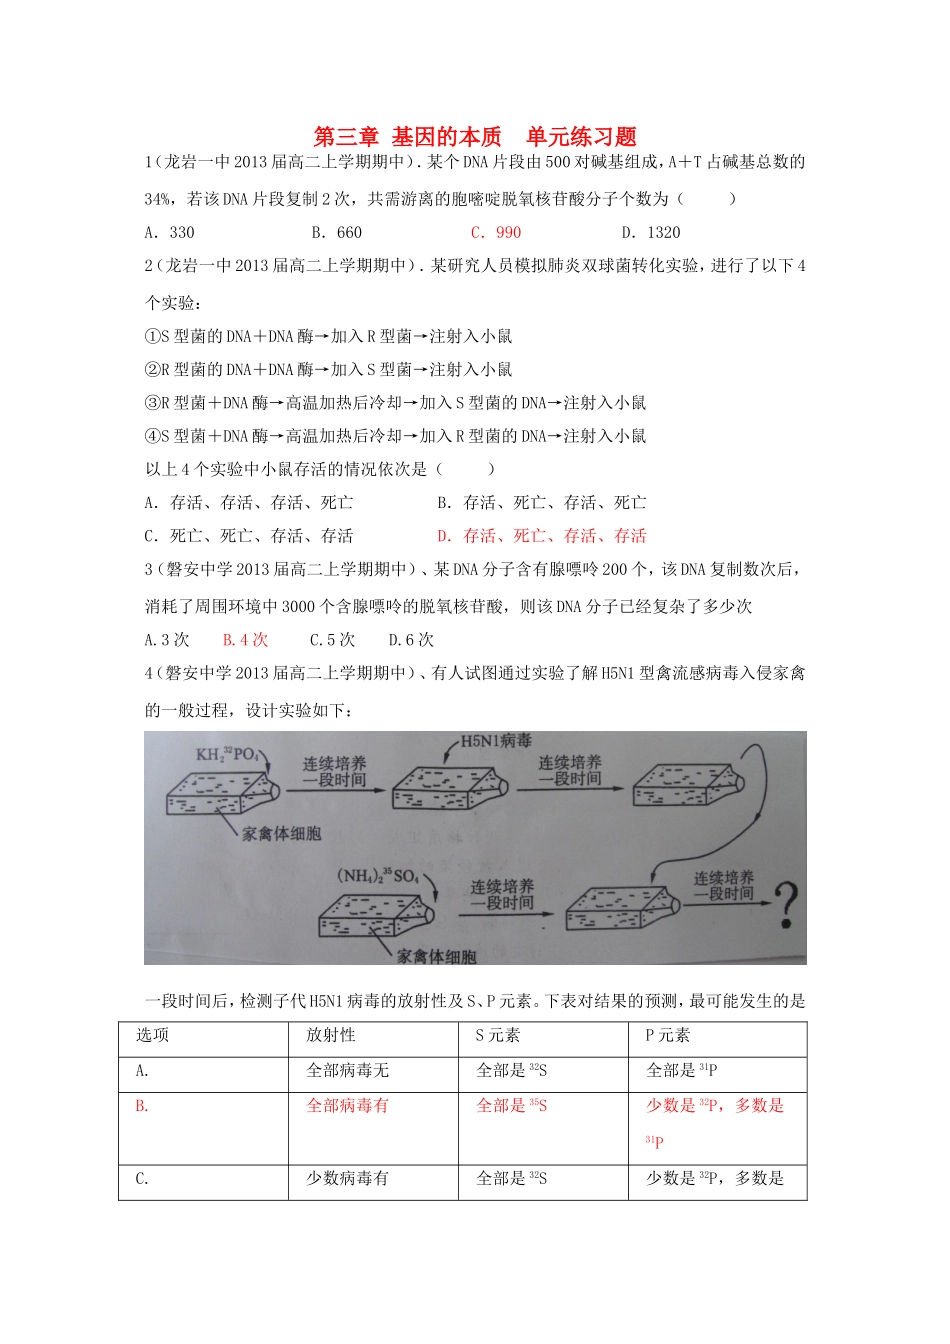 第三章 基因的本质 单元练习题
1(龙岩一中2013届高二上学期期中).某个DNA片段由500对碱基组成,A+T占碱基总数的
34%,若该DNA片段复制2次,共需游离的胞嘧啶脱氧核苷酸分子个数为( )
A．330 B．660 C．990 D．1320
2(龙岩一中2013届高二上学期期中).某研究人员模拟肺炎双球菌转化实验,进行了以下4
个实验:
①S型菌的DNA＋DNA酶→加入R型菌→注射入小鼠
②R型菌的DNA＋DNA酶→加入S型菌→注射入小鼠
③R型菌＋DNA酶→高温加热后冷却→加入S型菌的DNA→注射入小鼠
④S型菌＋DNA酶→高温加热后冷却→加入R型菌的DNA→注射入小鼠
以上4个实验中小鼠存活的情况依次是( )
A．存活、存活、存活、死亡 B．存活、死亡、存活、死亡
C．死亡、死亡、存活、存活 D．存活、死亡、存活、存活
3(磐安中学2013届高二上学期期中)、某DNA分子含有腺嘌呤200个,该DNA复制数次后,
消耗了周围环境中3000个含腺嘌呤的脱氧核苷酸,则该DNA分子已经复杂了多少次
A.3次 B.4次 C.5次 D.6次
4(磐安中学2013届高二上学期期中)、有人试图通过实验了解H5N1型禽流感病毒入侵家禽
的一般过程,设计实验如下:
KH₂³²PO₄ 连续培养一段时间 H5N1病毒 连续培养一段时间
家禽体细胞
(NH₄)₂³⁵SO₄ 连续培养一段时间 连续培养一段时间 ?
家禽体细胞
一段时间后,检测子代H5N1病毒的放射性及S、P元素。下表对结果的预测,最可能发生的是
选项 放射性 S元素 P元素
A. 全部病毒无 全部是³²S 全部是³¹P
B. 全部病毒有 全部是³⁵S 少数是³²P,多数是
³¹P
C. 少数病毒有 全部是³²S 少数是³²P,多数是